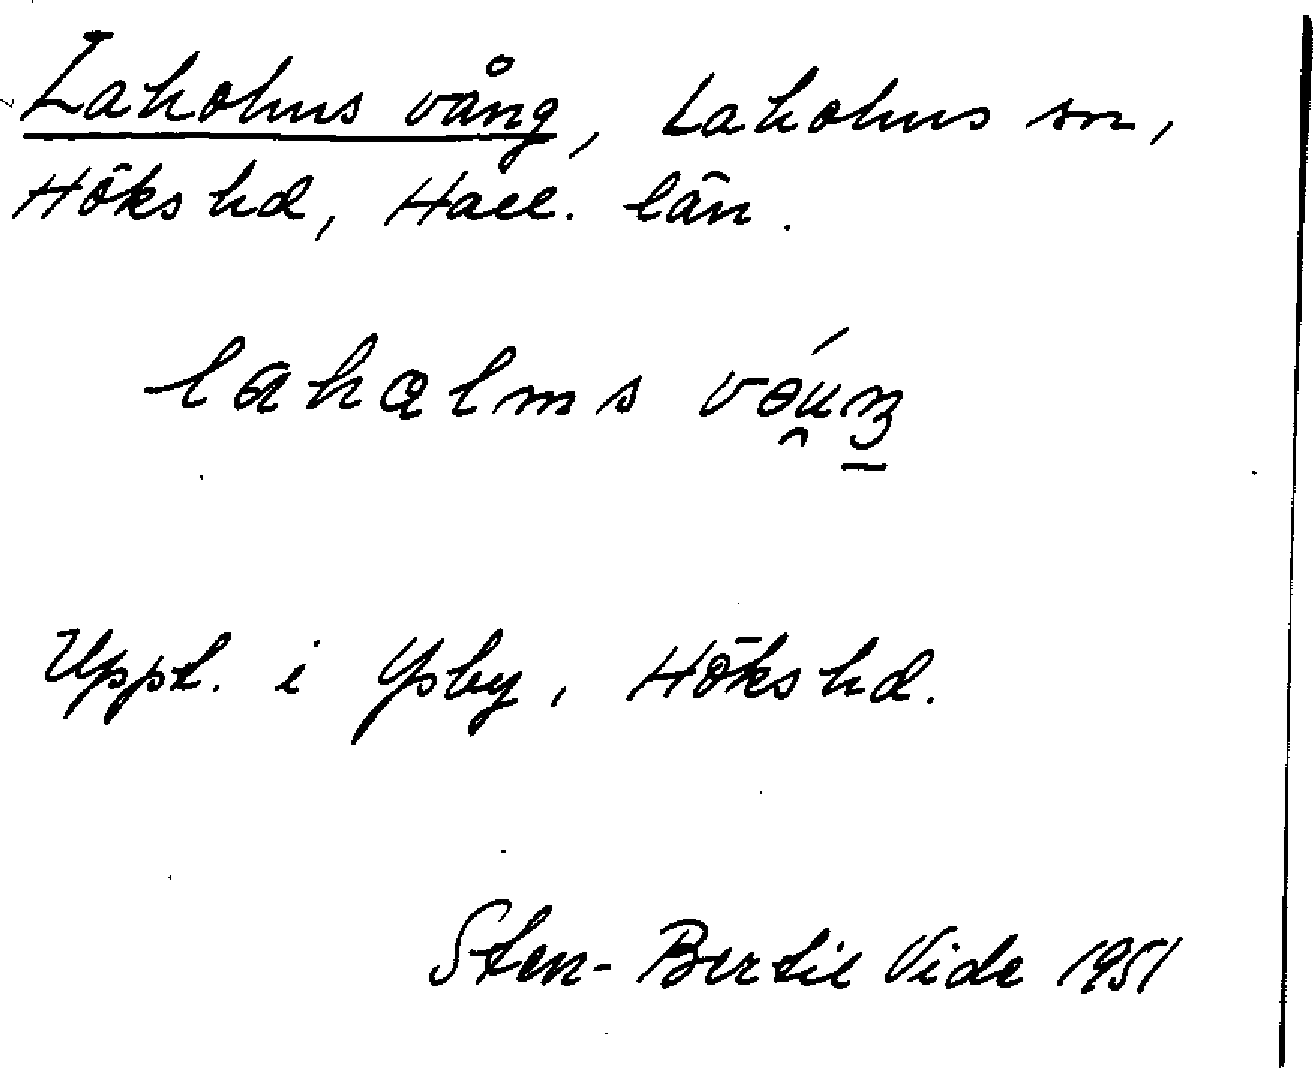 Laholms vång, Laholms sn,
Höks hd, Hall. län.
lahalms
Uppt. i Ysby, Höks hd.
Sten-Bertil Vide 1951